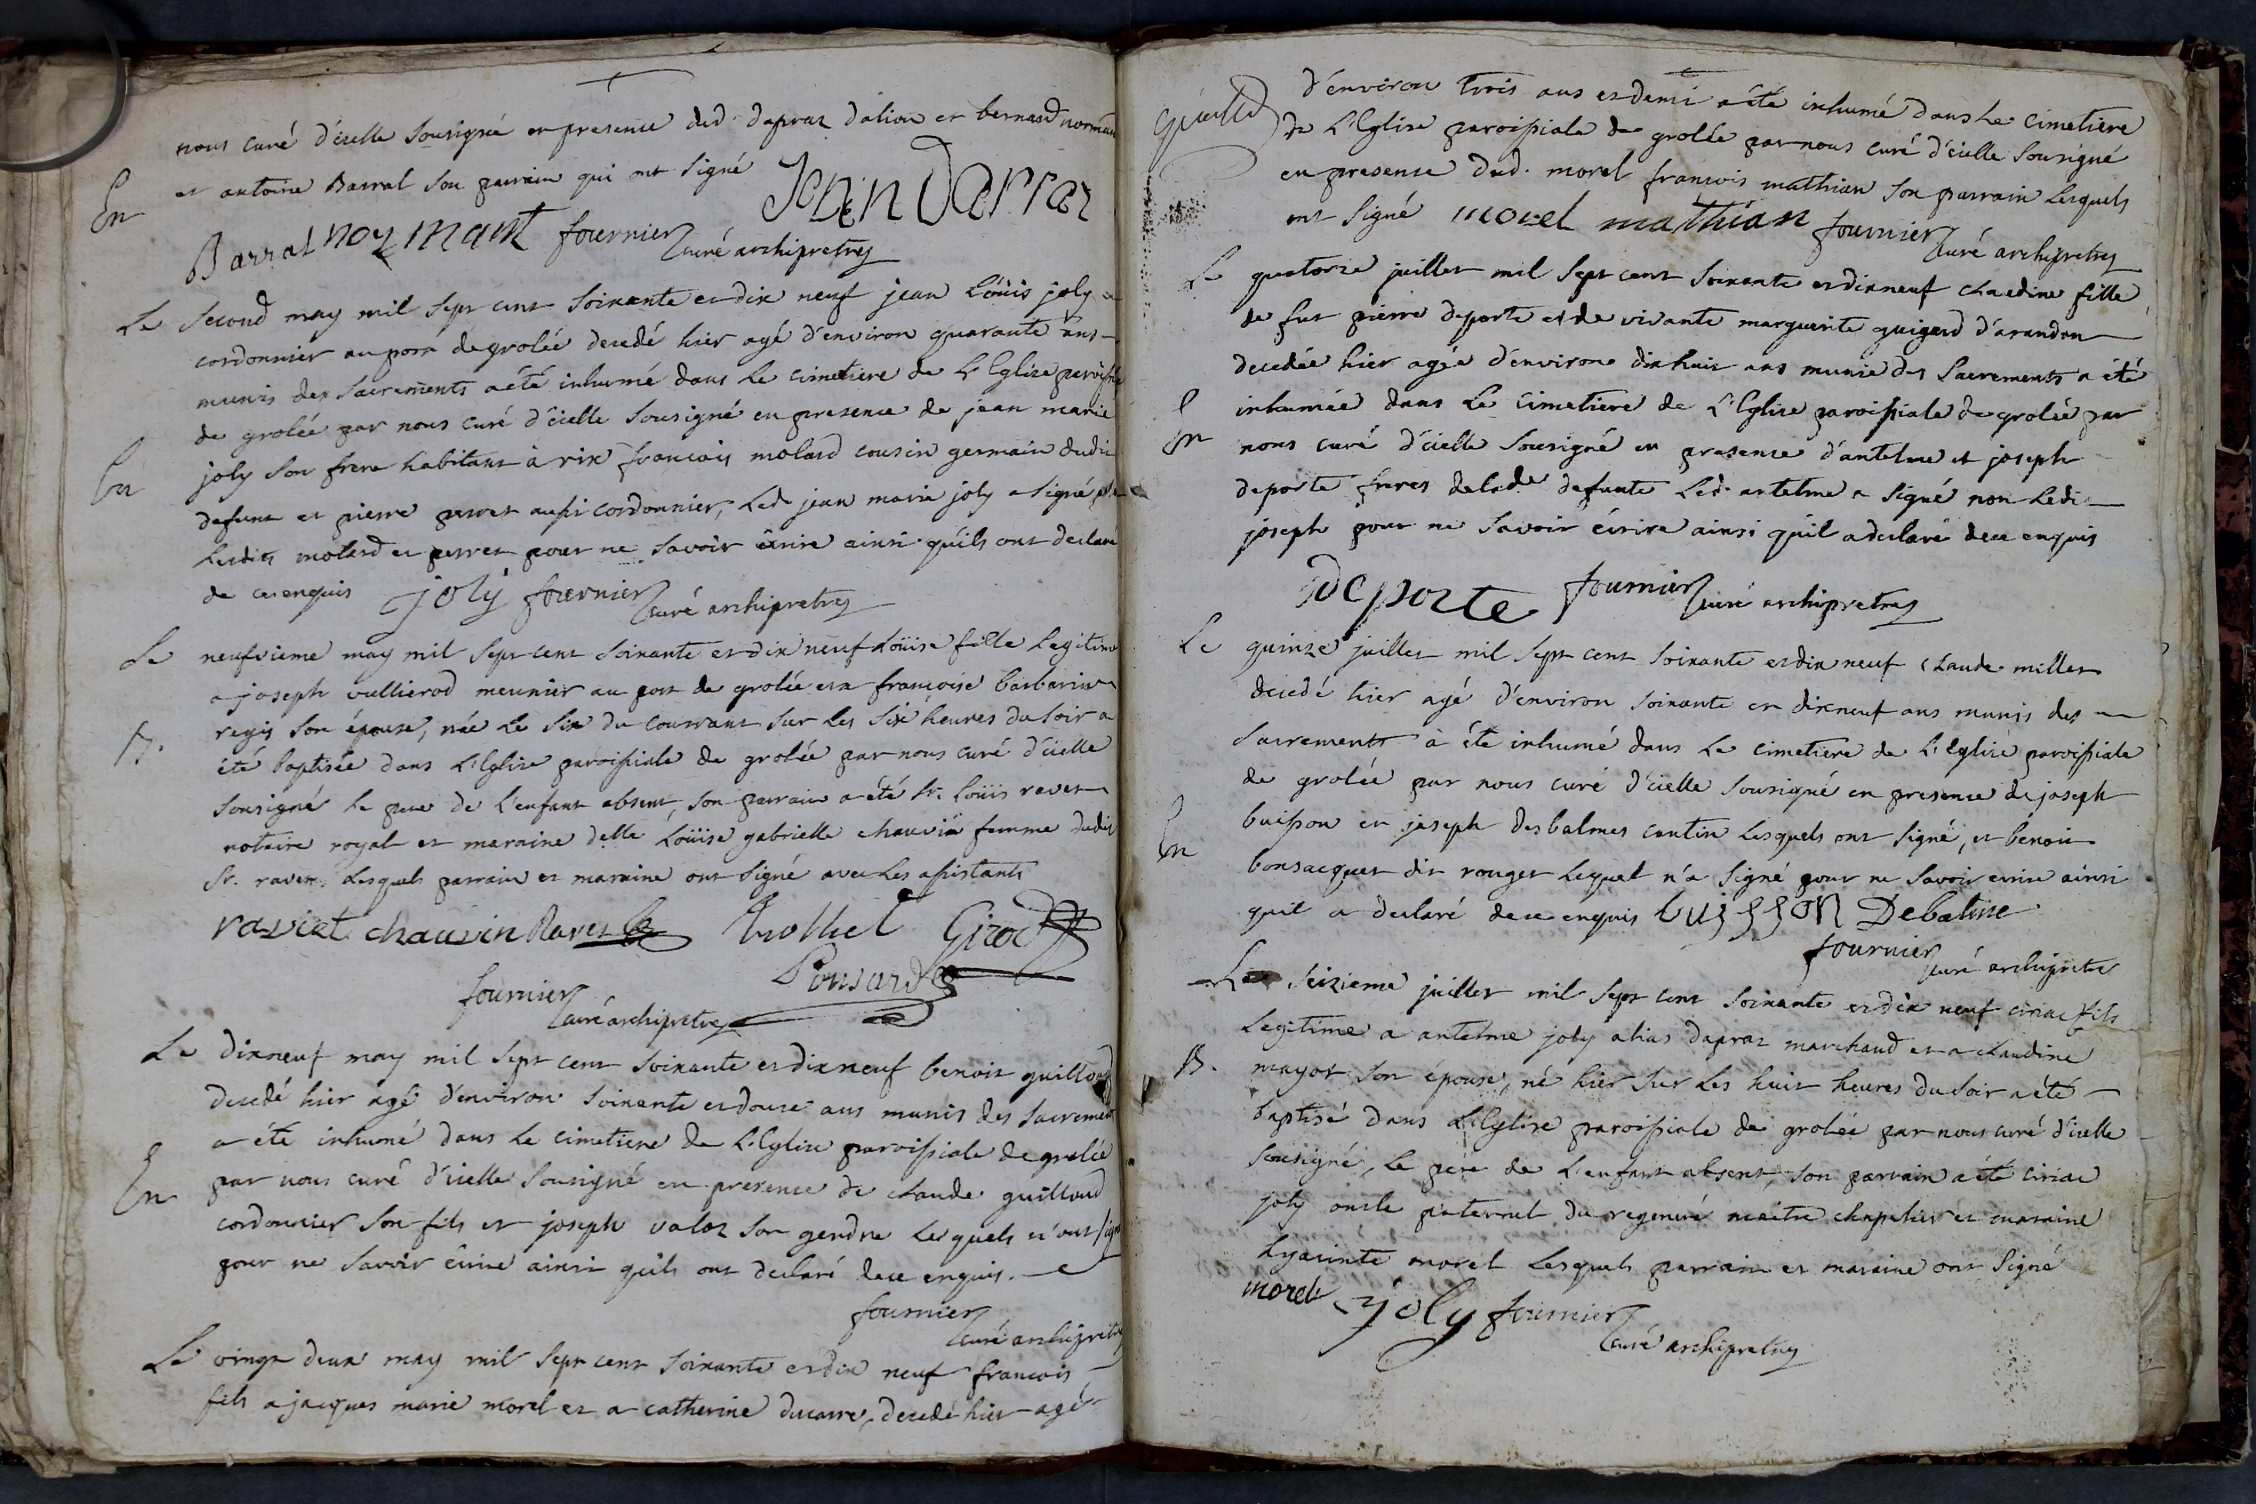 nous curé d'icelle sousigné en presence dud. dapraz d'alion et bernard norman
et antoine Barral son parrain qui ont signé
En
Barral normant fournier curé archipretre
Le second may mil sept cent soixante et dix neuf jean Loüis joly
cordonnier au port de grolée decedé hier agé d'environ quarante ans
munis des sacrements a été inhumé dans le cimetiere de L'Eglise paroissiale
de grolée par nous curé d'icelle sousigné en presence de jean marie
joly son frere habitant à rix francois molard cousin germain dudit
En
defunt et pierre perret aussi cordonnier, Led. jean marie joly a signé
Lesdits molard et perret pour ne savoir êcrire ainsi qu'ils ont declaré
de ce enquis joly fournier curé archipretre
Le neufvieme may mil sept cent soixante et dix neuf Loüise fille Legitime
a joseph vullierod meunier au port de grolée et a françoise barbarin
regis son épouse, née le six du courrant sur les six heures du soir a
B.
été baptisée dans L'Eglise paroissiale de grolée par nous curé d'icelle
sousigné le pere de L'enfant absent, son parrain a été Sr. Loüis ravet
notaire royal et maraine delle Loüise gabrielle chauvin femme dudit
Sr. ravet Lesquels parrain et maraine ont signé avec Les assistants
raviet chauvin Ravet Trolliet Girod
Ponsard
fournier
curé archipretre
Le dixneuf may mil sept cent soixante et dixneuf benoit guilloud
decedé hier agé d'environ soixante et douze ans munis des sacrement
a été inhumé dans le cimetiere de L'Eglise paroissiale de grolée
En
par nous curé d'icelle sousigné en presence de claude guilloud
cordonnier son fils et joseph valoz son gendre Lesquels n'ont signé
pour ne savoir êcrire ainsi qu'ils ont declaré de ce enquis.
fournier
curé archipretre
Le vingt deux may mil sept cent soixante et dix neuf francois
fils a jacques marie morel et a catherine ducarre, decedé hier agé
d'environ trois ans et demi a été inhumé dans Le cimetiere
de L'Eglise paroissiale de grolée par nous curé d'icelle sousigné
en presence dud. morel francois mathian son parrain Lesquels
ont signé morel mathian fournier curé archipretre
Le quatorze juillet mil sept cent soixante et dixneuf claudine fille
de fut pierre deporte et de vivante marguerite guigard d'arandon
decedée hier agée d'environ dix huit ans munie des sacrements a été
inhumée dans Le cimetiere de L'Eglise paroissiale de grolée par
En
nous curé d'icelle sousigné en presence d'antelme et joseph
deporte freres de lade defunte Led. antelme a signé non Ledi
joseph pour ne savoir écrire ainsi qu'il a declaré de ce enquis
deporte fournier curé archipretre
Le quinze juillet mil sept cent soixante et dix neuf claude millet
decedé hier agé d'environ soixante et dixneuf ans munis des
sacrements à été inhumé dans Le cimetiere de L'Eglise paroissiale
de grolée par nous curé d'icelle sousigné en presence de joseph
buisson et joseph desbalmes cantin Lesquels ont signé, et benoit
En
bonsacquet dit rouget Lequel n'a signé pour ne savoir ecrire ainsi
qu'il a declaré de ce enquis buisson Debalme
fournier
curé archipretre
Le seizieme juillet mil sept cent soixante et dix neuf ciriac fils
Legitime a antelme joly alias dapraz marchand et a claudine
B.
mayot son epouse, né hier sur les huit heures du soir a été
baptisé dans L'Eglise paroissiale de grolée par nous curé d'icelle
sousigné, le pere de L'enfant absent, son parrain a été ciriac
joly oncle paternel du regeneré maitre chapelier et maraine
hyacinte morel Lesquels parrain et maraine ont signé
morel joly fournier
curé archipretre